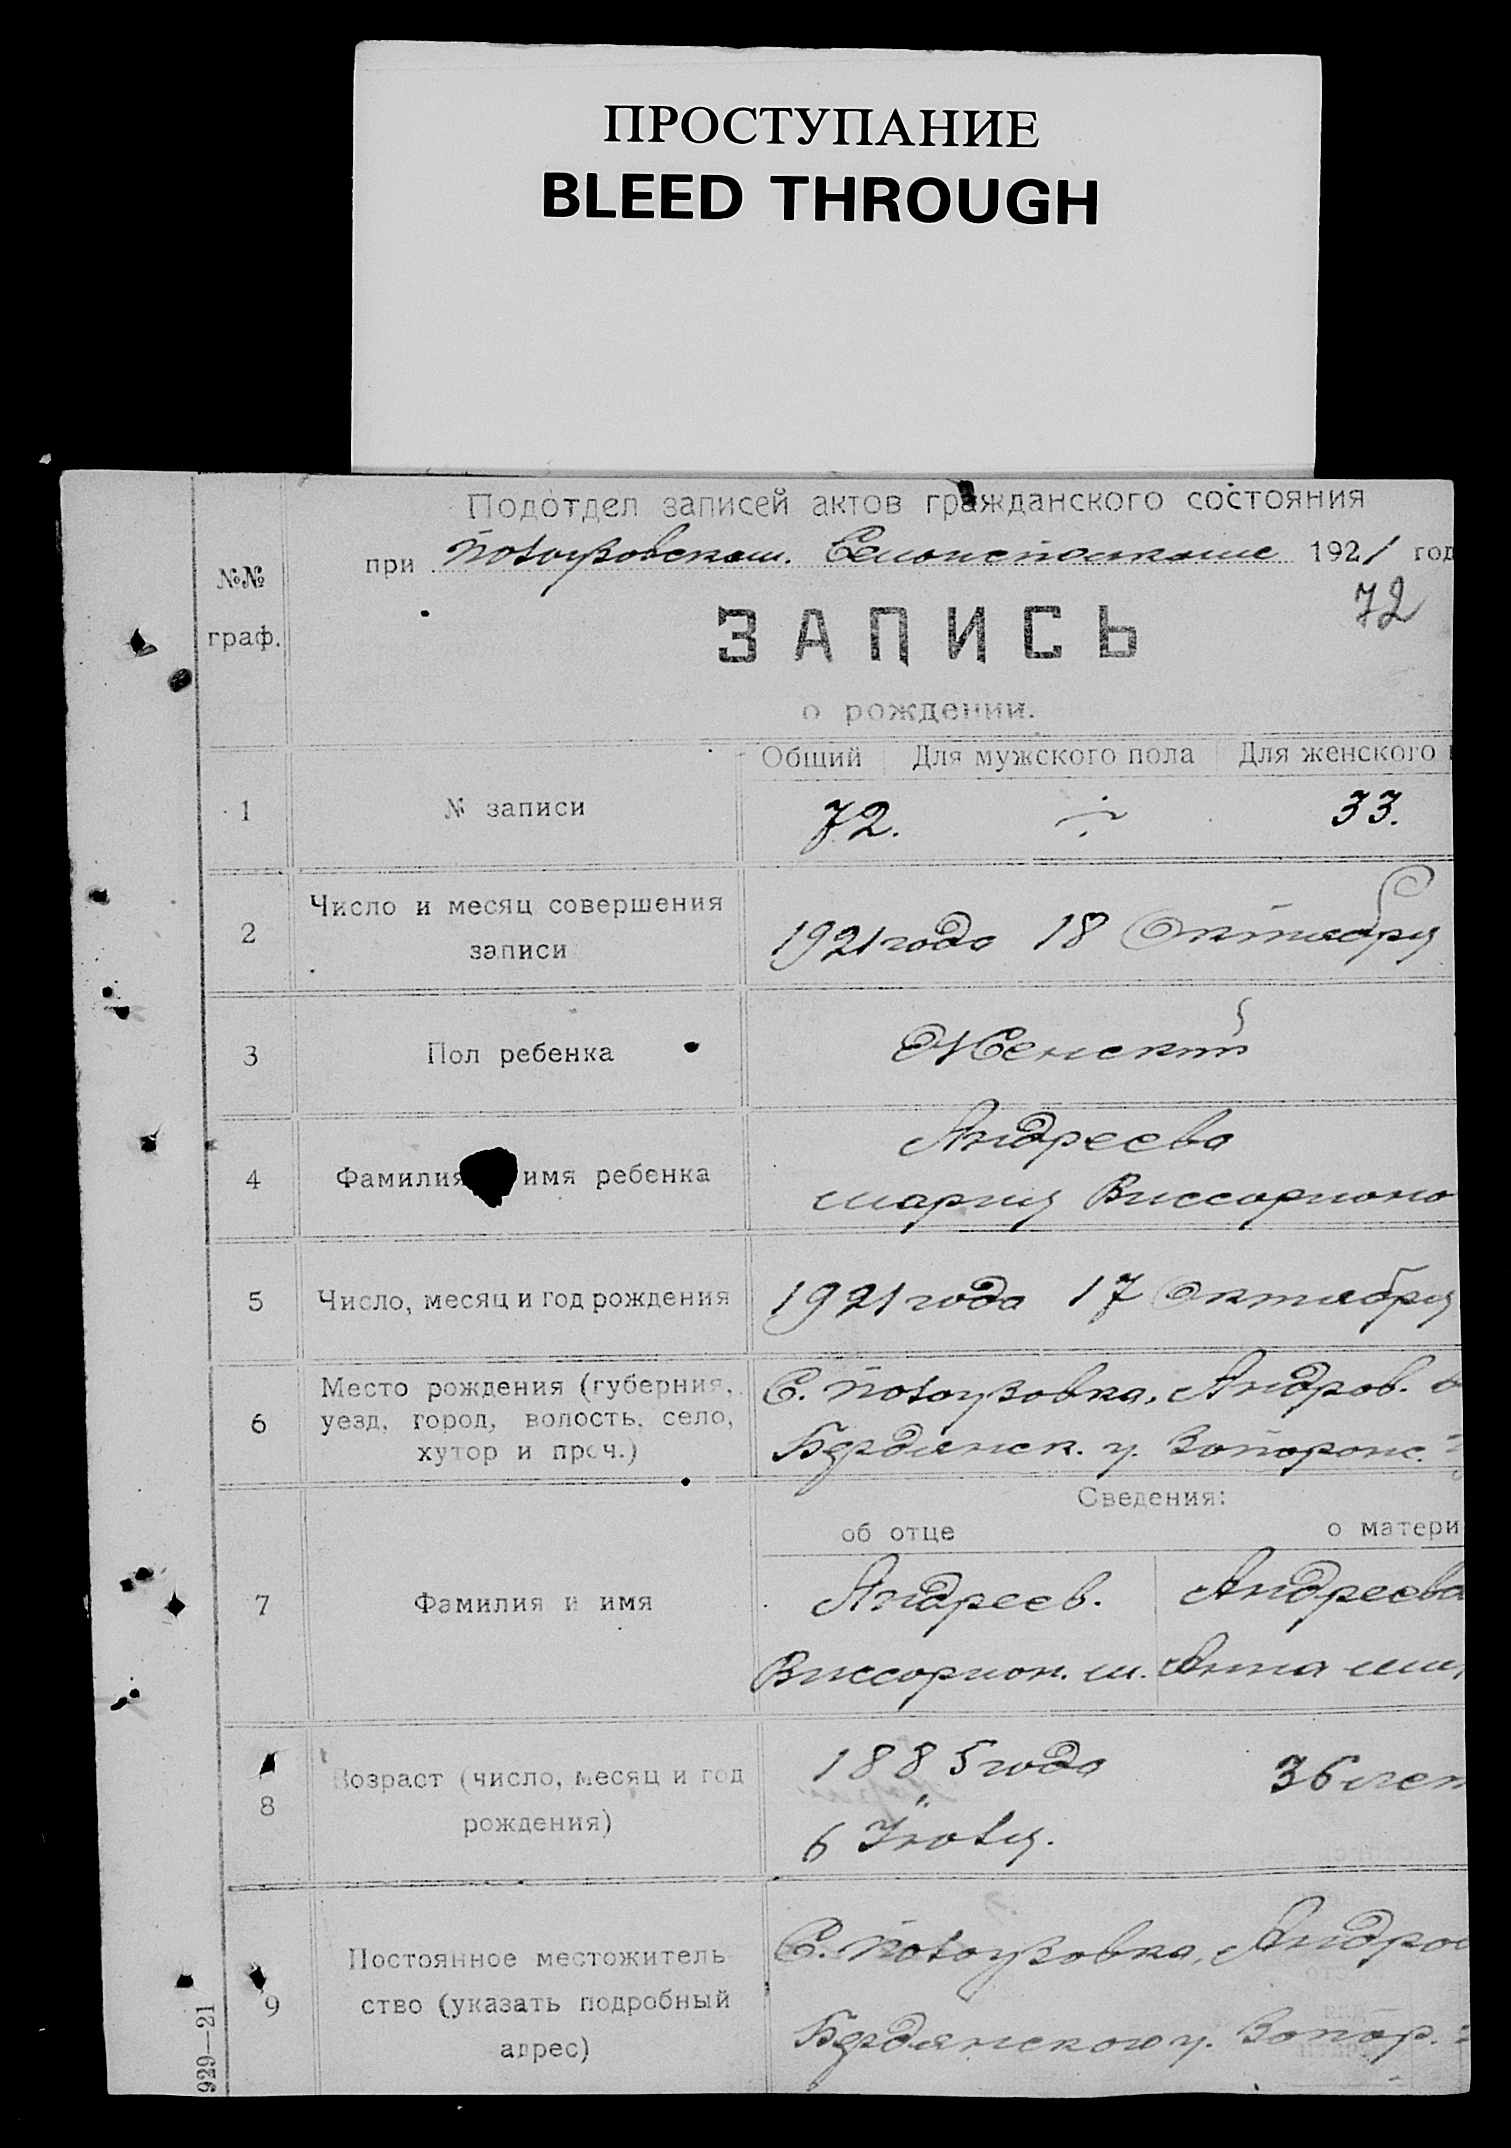 ПРОСТУПАНИЕ
BLEED THROUGH
Подотдел записей актов гражданского состояния
при 1921 год
№№
граф.
72
ЗАПИСЬ
о рождении.
Общий Для мужского пола Для женского
1 № записи 72. 33.
2 Число и месяц совершения
записи
1921 года 18 Октября
3 Пол ребенка Женский
4 Фамилия имя ребенка
Андреева
Мария Виссорионо
5 Число, месяц и год рождения 1921 года 17 Октября
6 Место рождения (губерния,
уезд, город, волость, село,
хутор и проч.)
С. Андров.
Бердянск. у.
Сведения:
об отце о матери
7 Фамилия и имя
Андреев. Андреева
Виссорион. М. Анна
8 Возраст (число, месяц и год
рождения)
1885 года 36 лет
6
9 Постоянное местожитель
ство (указать подробный
адрес)
С. Андро
Бердянского у. Запор.
929—21